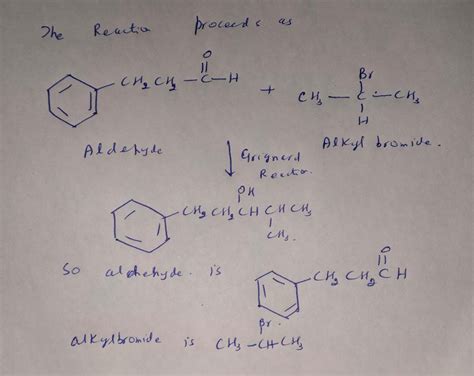 The Reactio proceeds as
O
CH2 CH2 — C — H + CH3 — C — CH3
Br
H
Aldehyde
Alkyl bromide.
Grignard
Reactio.
OH
CH2 CH2 CH CH CH3
CH3.
So aldehyde. is
O
CH2 CH2 C H
Br.
alkylbromide is CH3 — CH — CH3